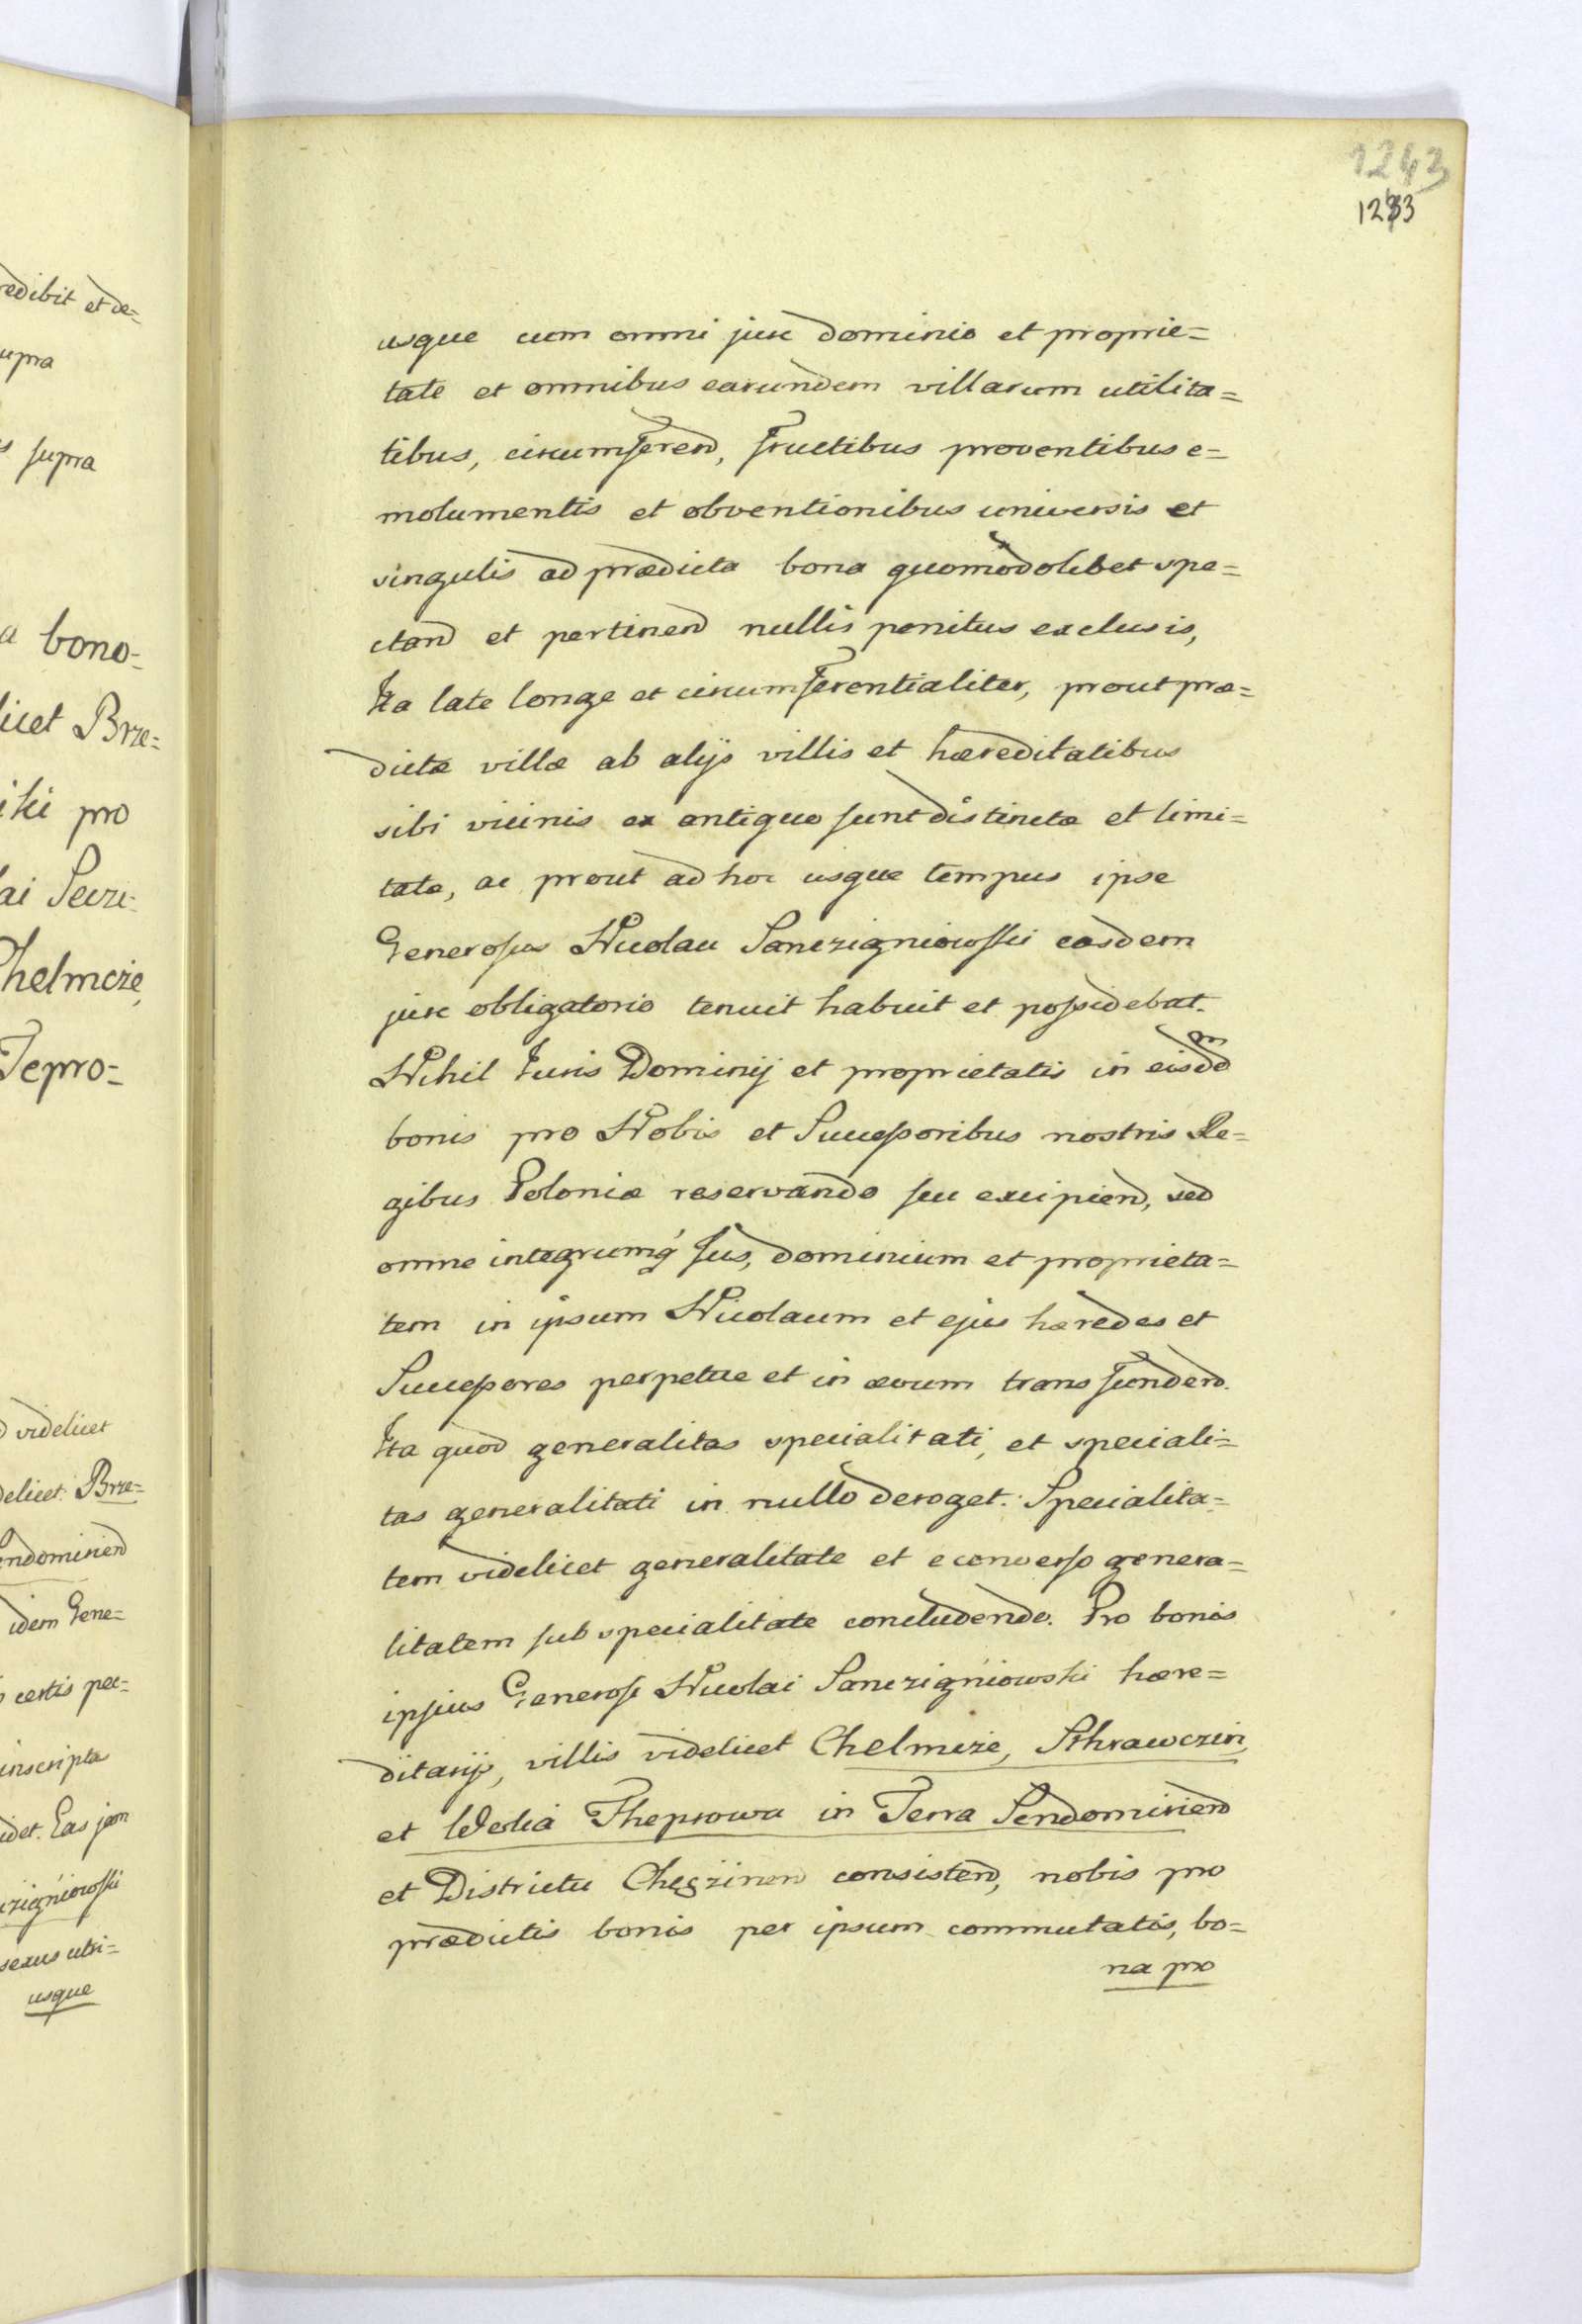 redibit et de=
upra
s supra
a bono=
licet Brze=
iki pro
lai Secze=
Chelmcze,
Tepro=
videlicet
delicet Brze=
endomirien
idem Gene=
certis pec=
inscripta
idet. Eas jam
czigniowski
sexus utri=
usque
1243
1233
usque cum omni jure dominio et proprie=
tate et omnibus earundem villarum utilita=
tibus, circumferen, fructibus proventibus e=
molumentis et obventionibus universis et
singulis ad prædicta bona quomodolibet spe=
ctan et pertinen nullis penitus exclusis,
Ita late longe et circumferentialiter, prout præ=
dictæ villæ ab alijs villis et hæreditatibus
sibi vicinis ex antiquo sunt distinctæ et limi=
tatæ, ac prout ad hoc usque tempus ipse
Generosus Nicolau Sanczigniowski easdem
jure obligatorio tenuit habuit et possidebat.
Nihil Iuris Dominij et proprietatis in eisdem
bonis pro Nobis et Successoribus nostris Re=
gibus Poloniæ reservando seu excipien, sed
omne integrumq́ Jus, dominium et proprieta=
tem in ipsum Nicolaum et ejus hæredes et
Successores perpetue et in ævum transfunden.
Ita quod generalitas specialitati, et speciali=
tas generalitati in nullo deroget. Specialita=
tem videlicet generalitate et econverso genera=
litatem sub specialitate concludendo. Pro bonis
ipsius Generosi Nicolai Sanczigniowski hære=
ditarijs, villis videlicet Chelmcze, Sthrawczin,
et Wolia Theprowa in Terra Sendomirien
et Districtu Chęzinen consisten, nobis pro
prædictis bonis per ipsum commutatis, bo=
na pro